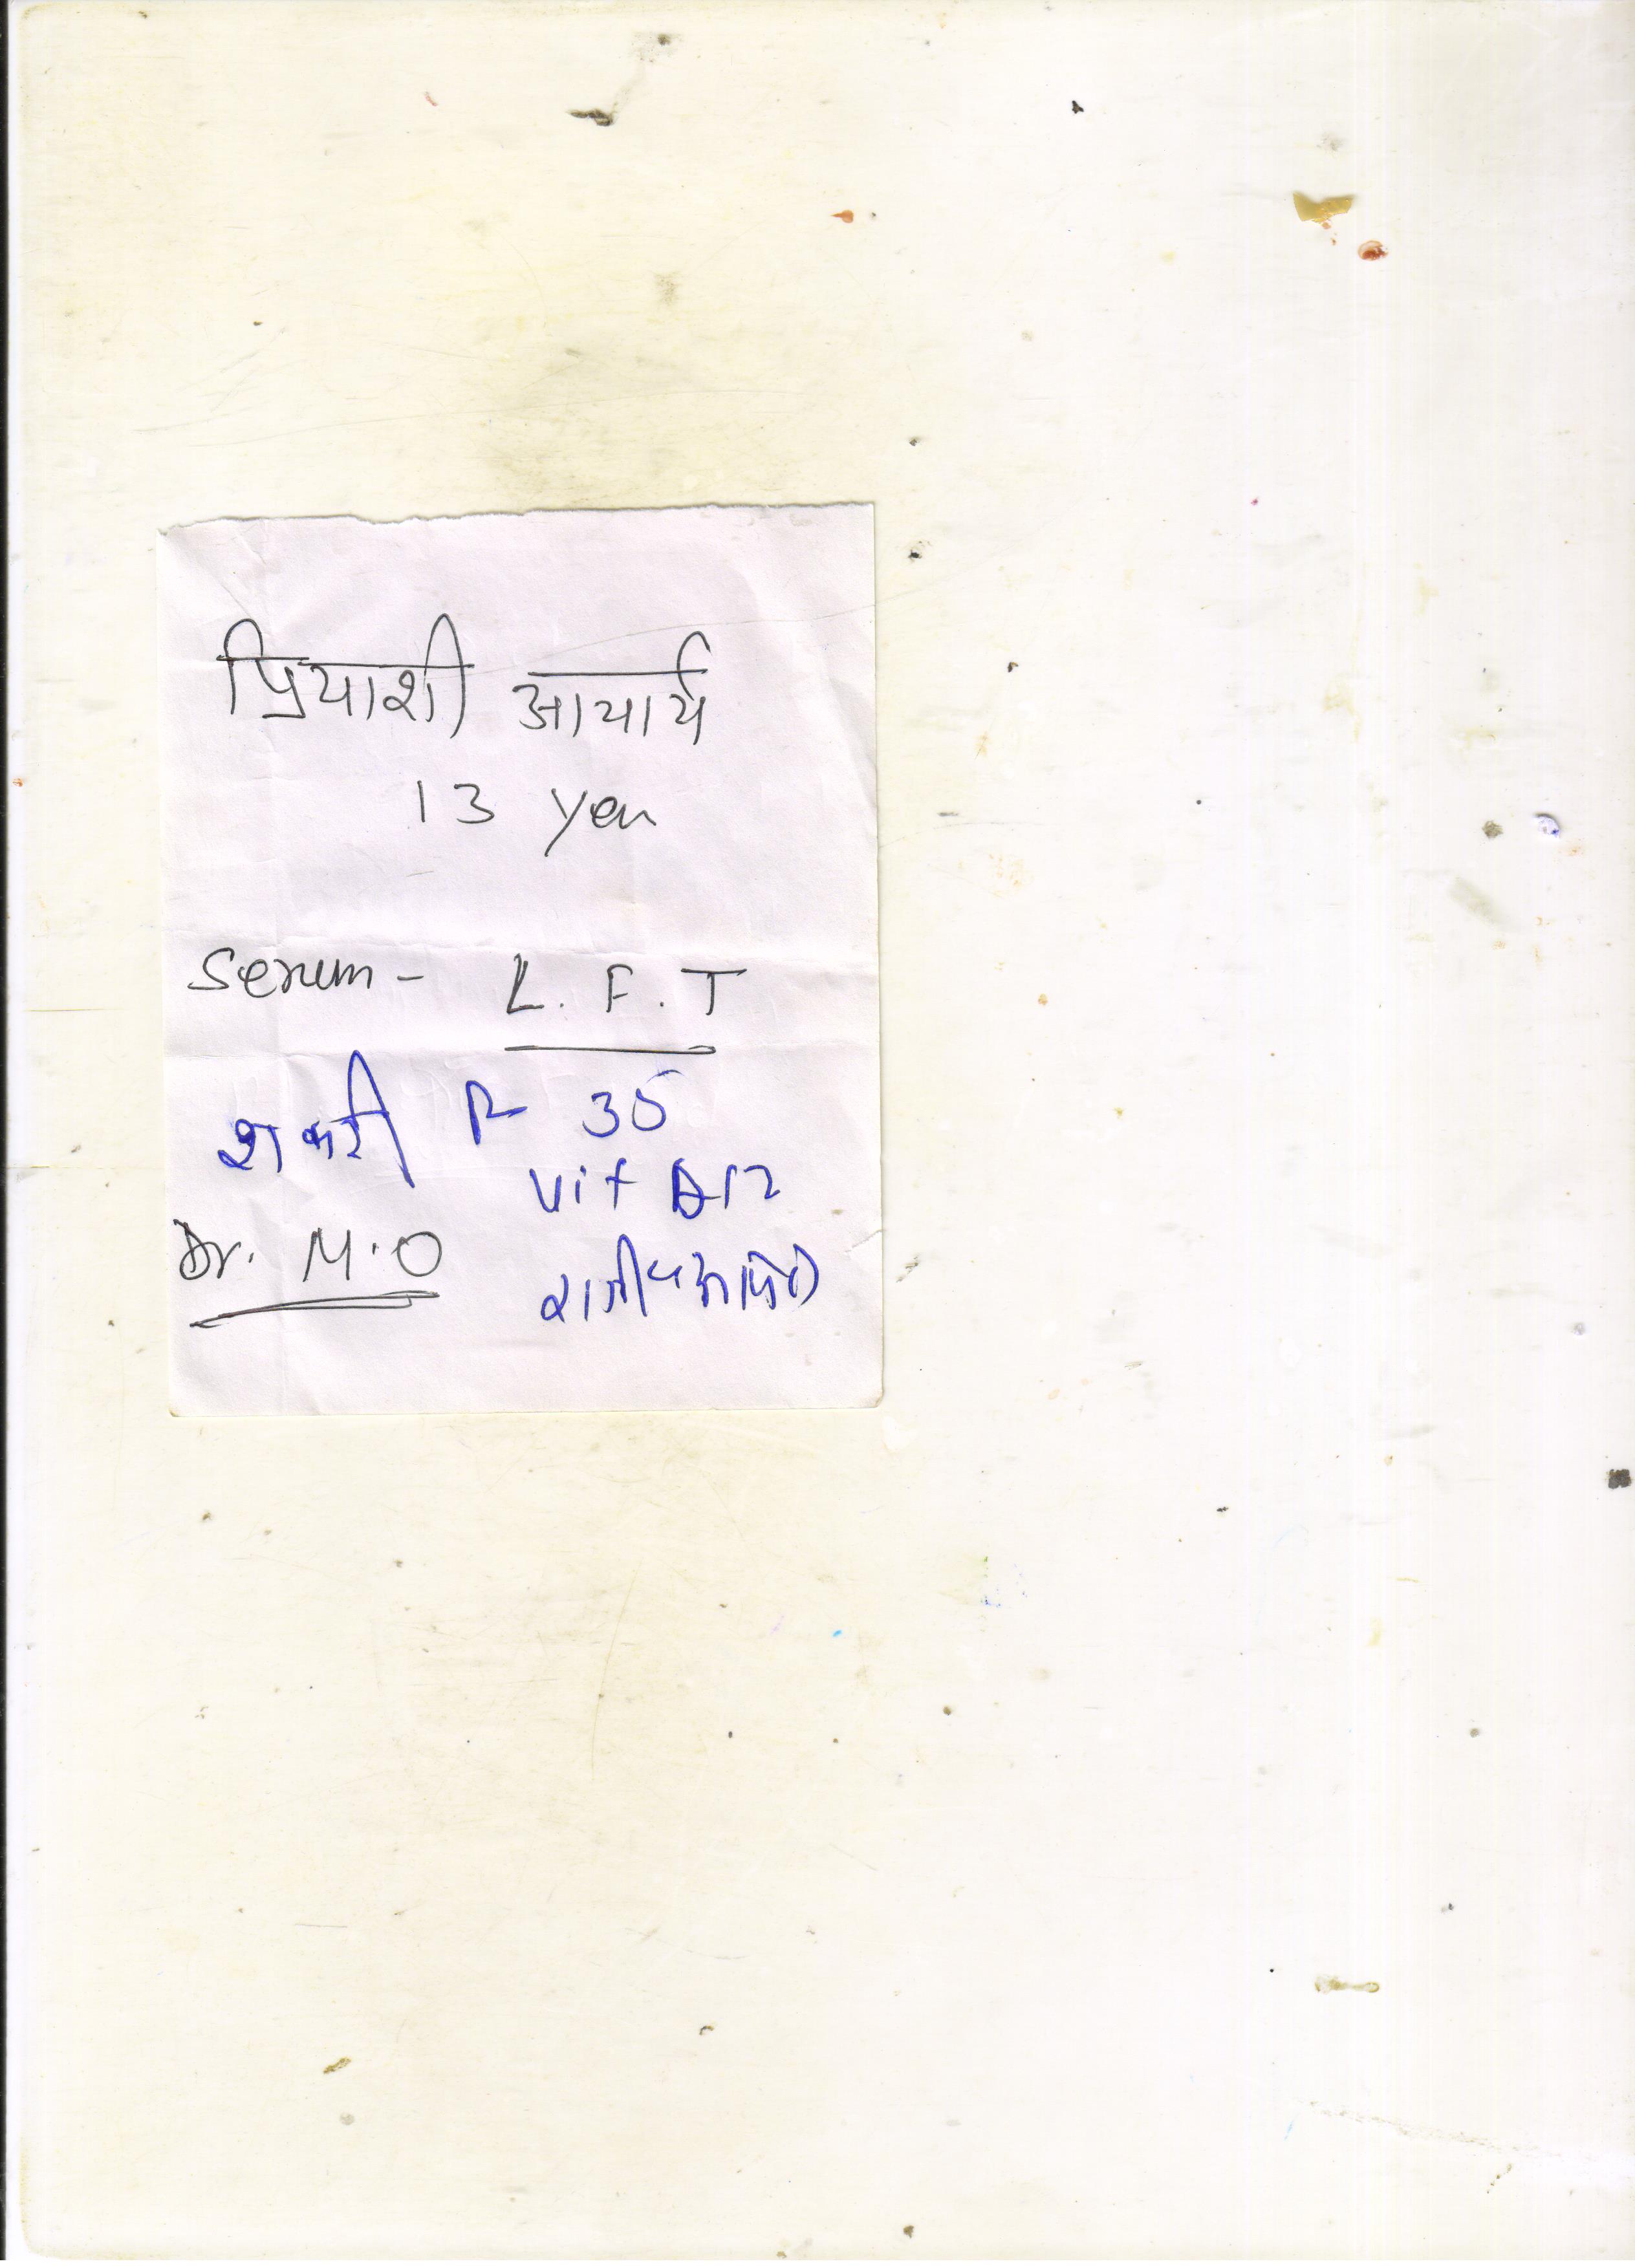 प्रियाशी आचार्य
13 Year
Serum - L.F.T
F 35
Vit B12
Dr. M.O